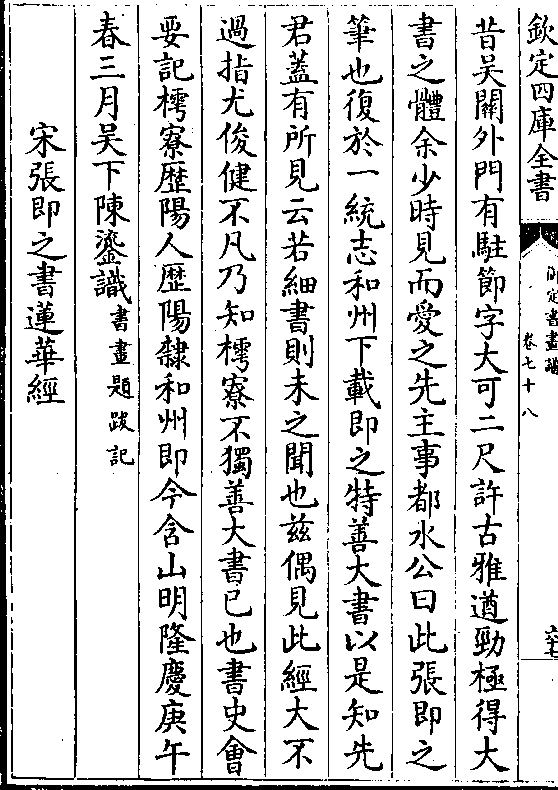 欽定四庫全書
御定書畫譜
卷七十八
六十七
昔吴闗外門有駐節字大可二尺許古雅遒勁極得大
書之體余少時見而愛之先主事都水公曰此張即之
筆也復於一統志和州下載即之特善大書以是知先
君蓋有所見云若細書則未之聞也兹偶見此經大不
過指尤俊健不凡乃知樗寮不獨善大書已也書史㑹
要記樗寮歴陽人歴陽隸和州即今含山明隆慶庚午
春三月吴下陳鎏識書畫題跋記
宋張即之書蓮華經